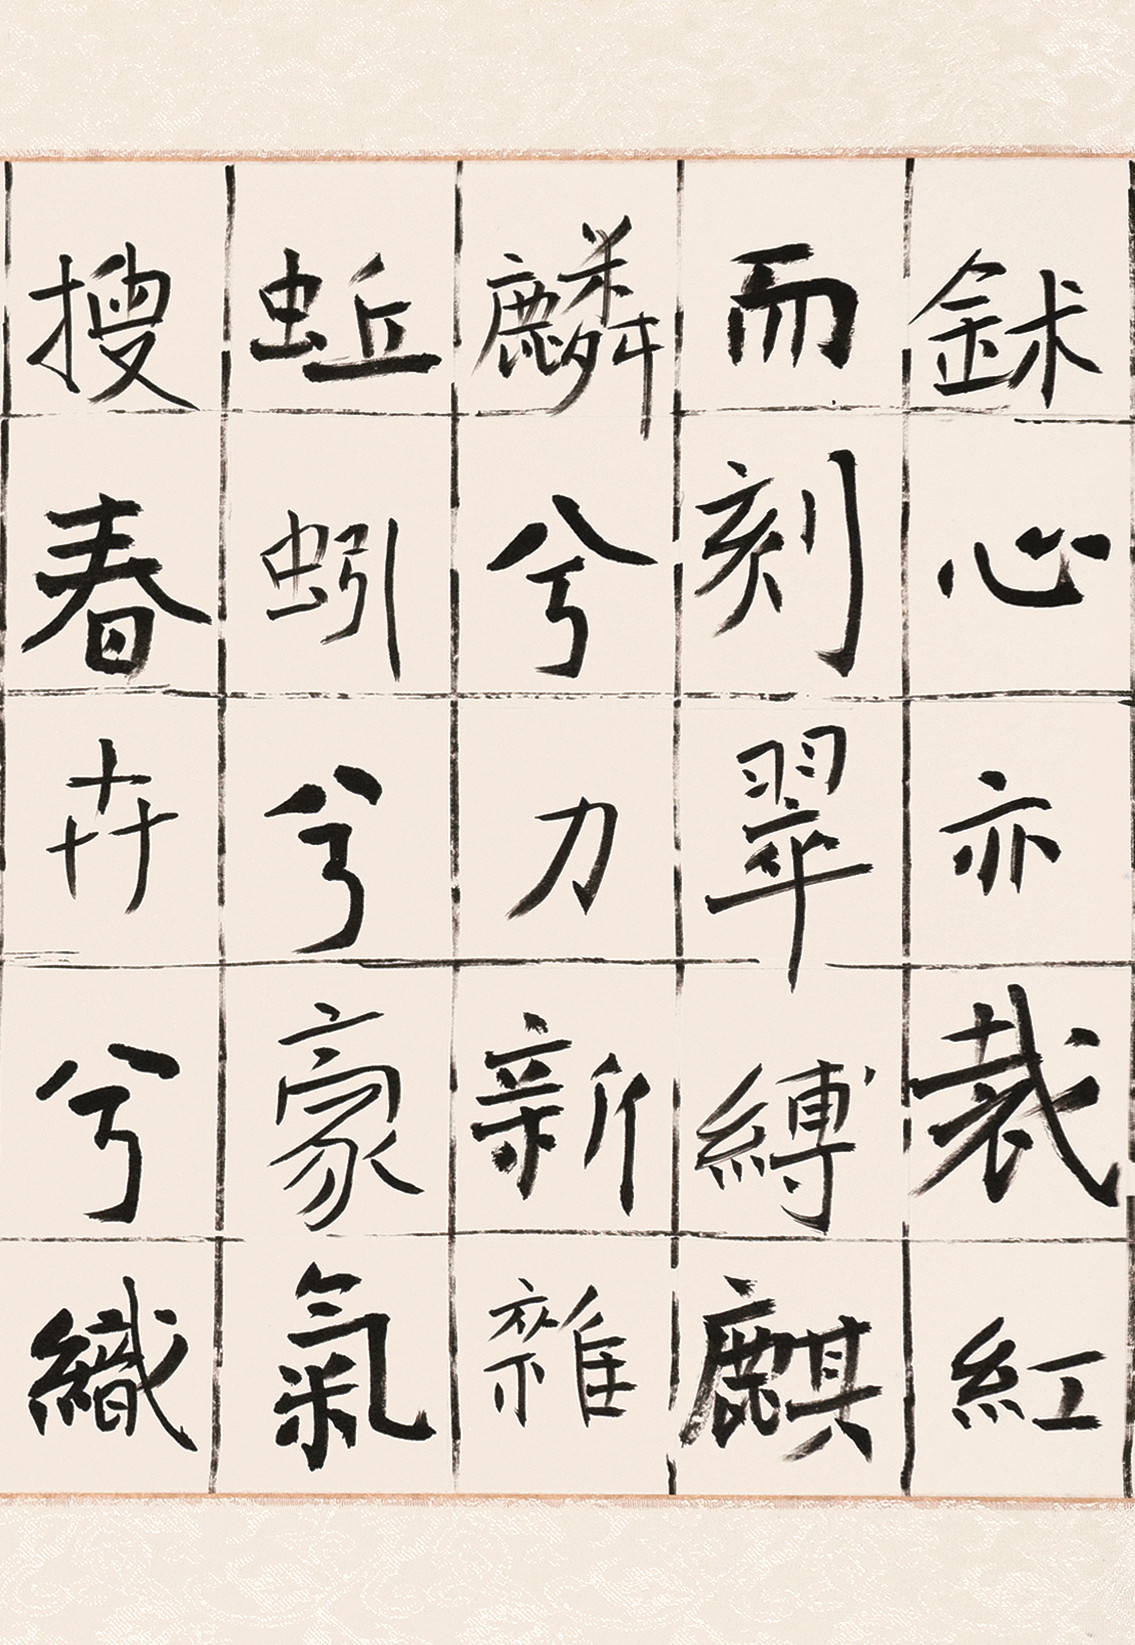 鉥心亦裁紅
而刻翠縛麒
麟兮力新雜
蚯蚓兮豪氣
搜春卉兮織